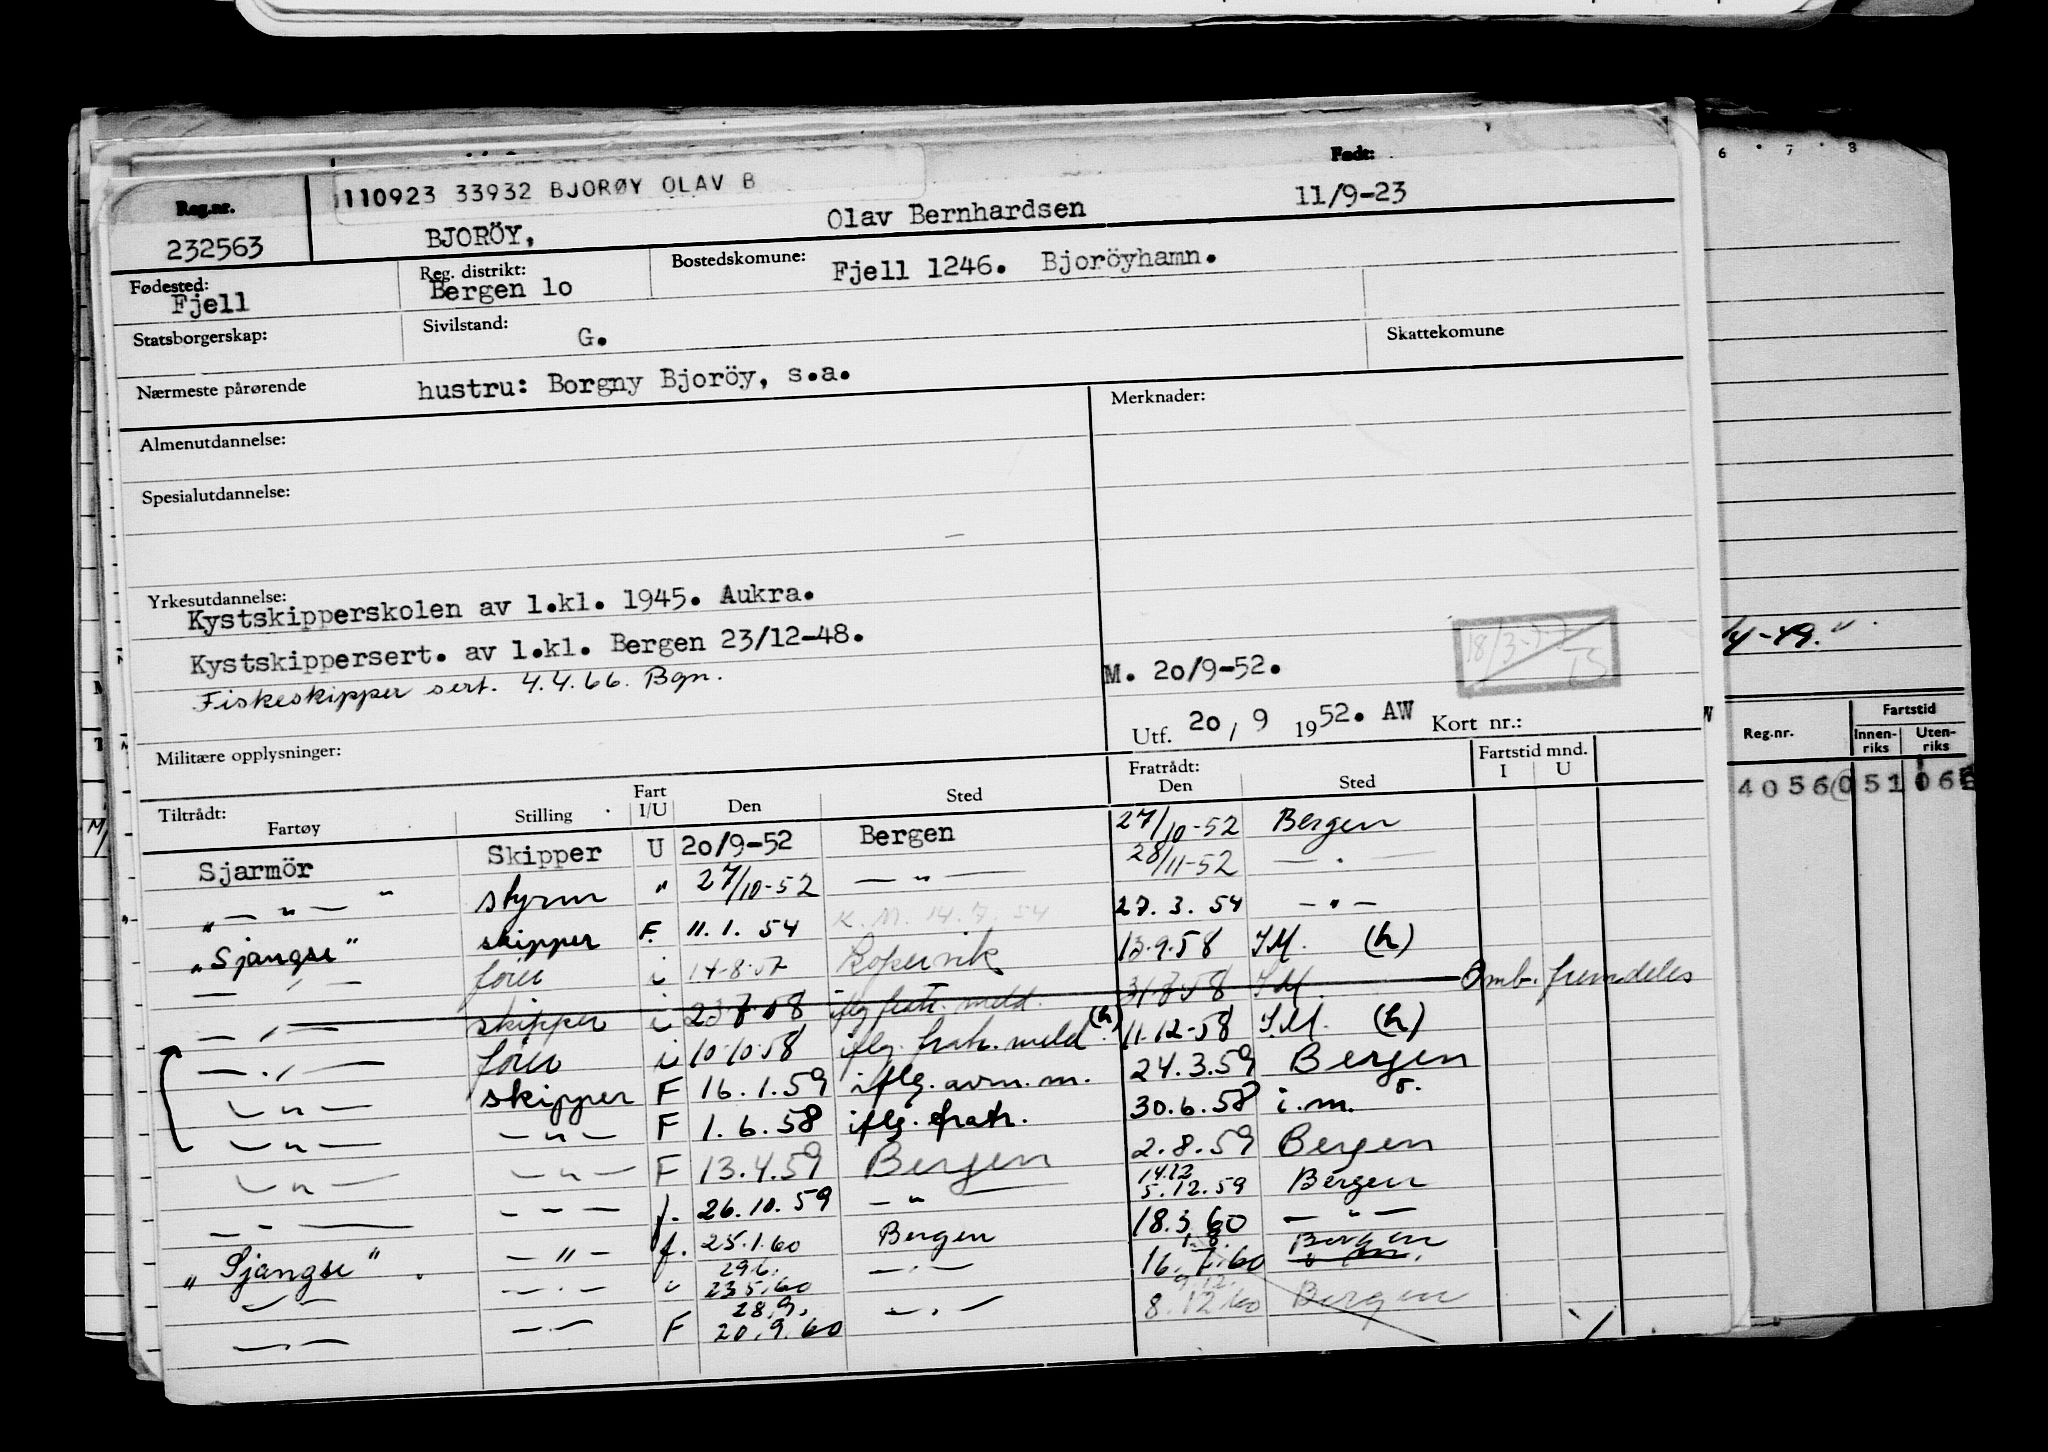 6 · 7 · 8
Født:
110923 33932 BJORØY OLAV B
Reg.nr.
11/9-23
232563 BJORÖY, Olav Bernhardsen
Fødested: Reg. distrikt: Bostedskomune:
Fjell Bergen lo Fjell 1246. Bjoröyhamn.
Statsborgerskap: Sivilstand: G. Skattekomune
Nærmeste pårørende hustru: Borgny Bjoröy, s.a.
Almenutdannelse: Merknader:
Spesialutdannelse:
Yrkesutdannelse:
Kystskipperskolen av 1.kl. 1945. Aukra.
Kystskippersert. av 1.kl. Bergen 23/12-48.
Fiskeskipper sert. 4.4.66. Bgn.
M. 20/9-52.
Utf. 20/ 9 1952. AW Kort nr.:
Militære opplysninger:
Tiltrådt: Fart Fratrådt: Fartstid mnd.
Fartøy Stilling I/U Den Sted Den Sted I U
Sjarmör Skipper U 20/9-52 Bergen 27/10-52 Bergen
" — " — " styrm " 27/10-52 — " — 28/11-52 — " —
"Sjangse" skipper F. 11.1.54 K.M. 14.7.54 27.3.54 — " —
— " — fører i 14-8-57 Kopervik 13-9-58 I.M. (h)
— " — skipper i 23-7-58 iflg fratr. meld. 31-7-58 I.M. Omb. fremdeles
— " — fører i 10-10-58 iflg. fratr. meld. (h) 11-12-58 I.M. (h)
— " — skipper F 16.1.59 iflg. avm. m. 24.3.59 Bergen
— " — — " — F 1.6.58 iflg. fratr. 30.6.58 i.m.
— " — — " — F 13.4.59 Bergen 2.8.59 Bergen
— " — — " — f. 26.10.59 — " — 14.12 5.12.59 Bergen
"Sjangse" — " — f. 25.1.60 Bergen 18.3.60 — " —
— " — — " — " 29.6. 23.5.60 — " — 1.8 16.7.60 Bergen
— " — — " — F 28.9. 20.9.60 — " — 9.12. 8.12.60 Bergen
/4-49."
Reg.nr. Fartstid
Innen-riks Uten-riks
40560 51 06